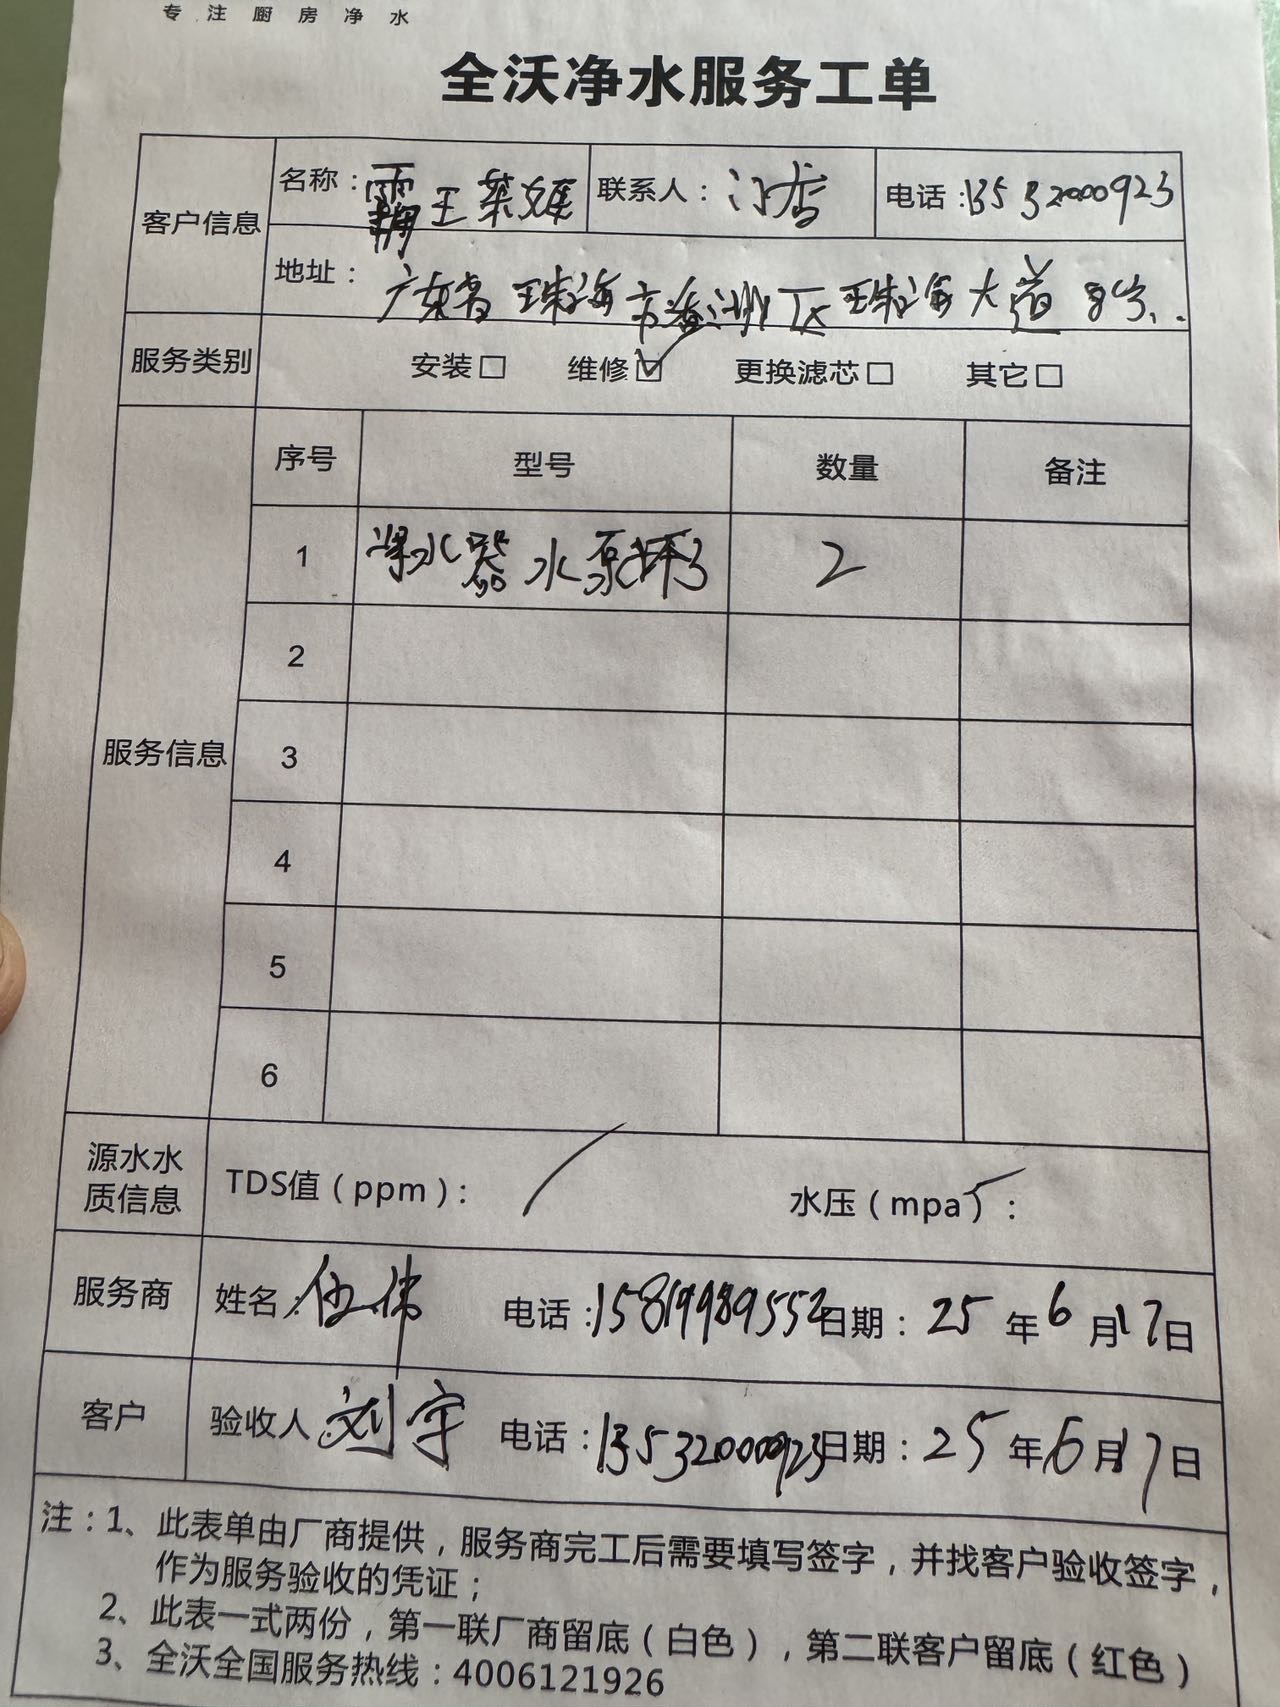 专注厨房净水
全沃净水服务工单
客户信息
名称：霸王茶姬 联系人：门店 电话：13532000923
地址：广东省珠海市香洲区珠海大道8号..
服务类别 安装□ 维修☑ 更换滤芯□ 其它□
服务信息
序号 型号 数量 备注
1 净水器水泵坏了 2
2
3
4
5
6
源水水
质信息
TDS值（ppm）： / 水压（mpa）：
服务商 姓名：伍伟 电话：15819989552 日期：25年6月17日
客户 验收人 刘宇 电话：13532000923 日期：25年6月17日
注：1、此表单由厂商提供，服务商完工后需要填写签字，并找客户验收签字，
作为服务验收的凭证；
2、此表一式两份，第一联厂商留底（白色），第二联客户留底（红色）
3、全沃全国服务热线：4006121926